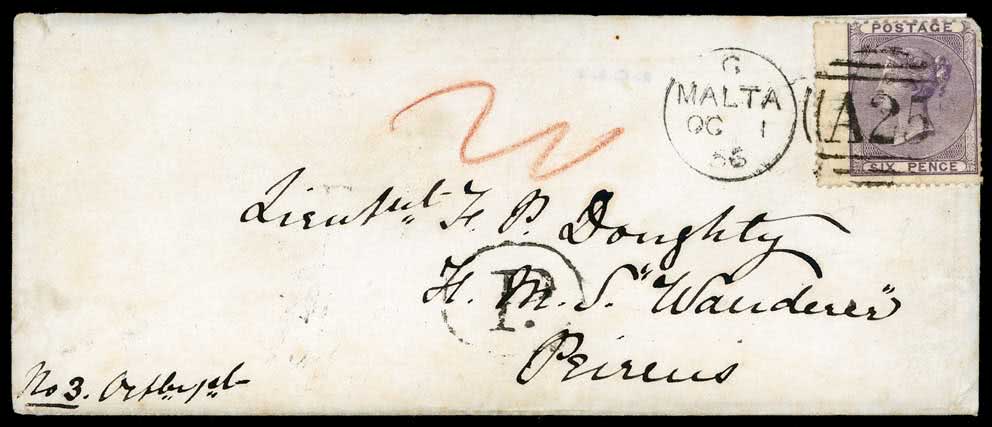 POSTAGE
SIX PENCE
A25
G
MALTA
OC 1
56
Lieutnt H. P. Doughty
H. M. S. "Wanderer"
Peireus
P.
No 3. October 1st